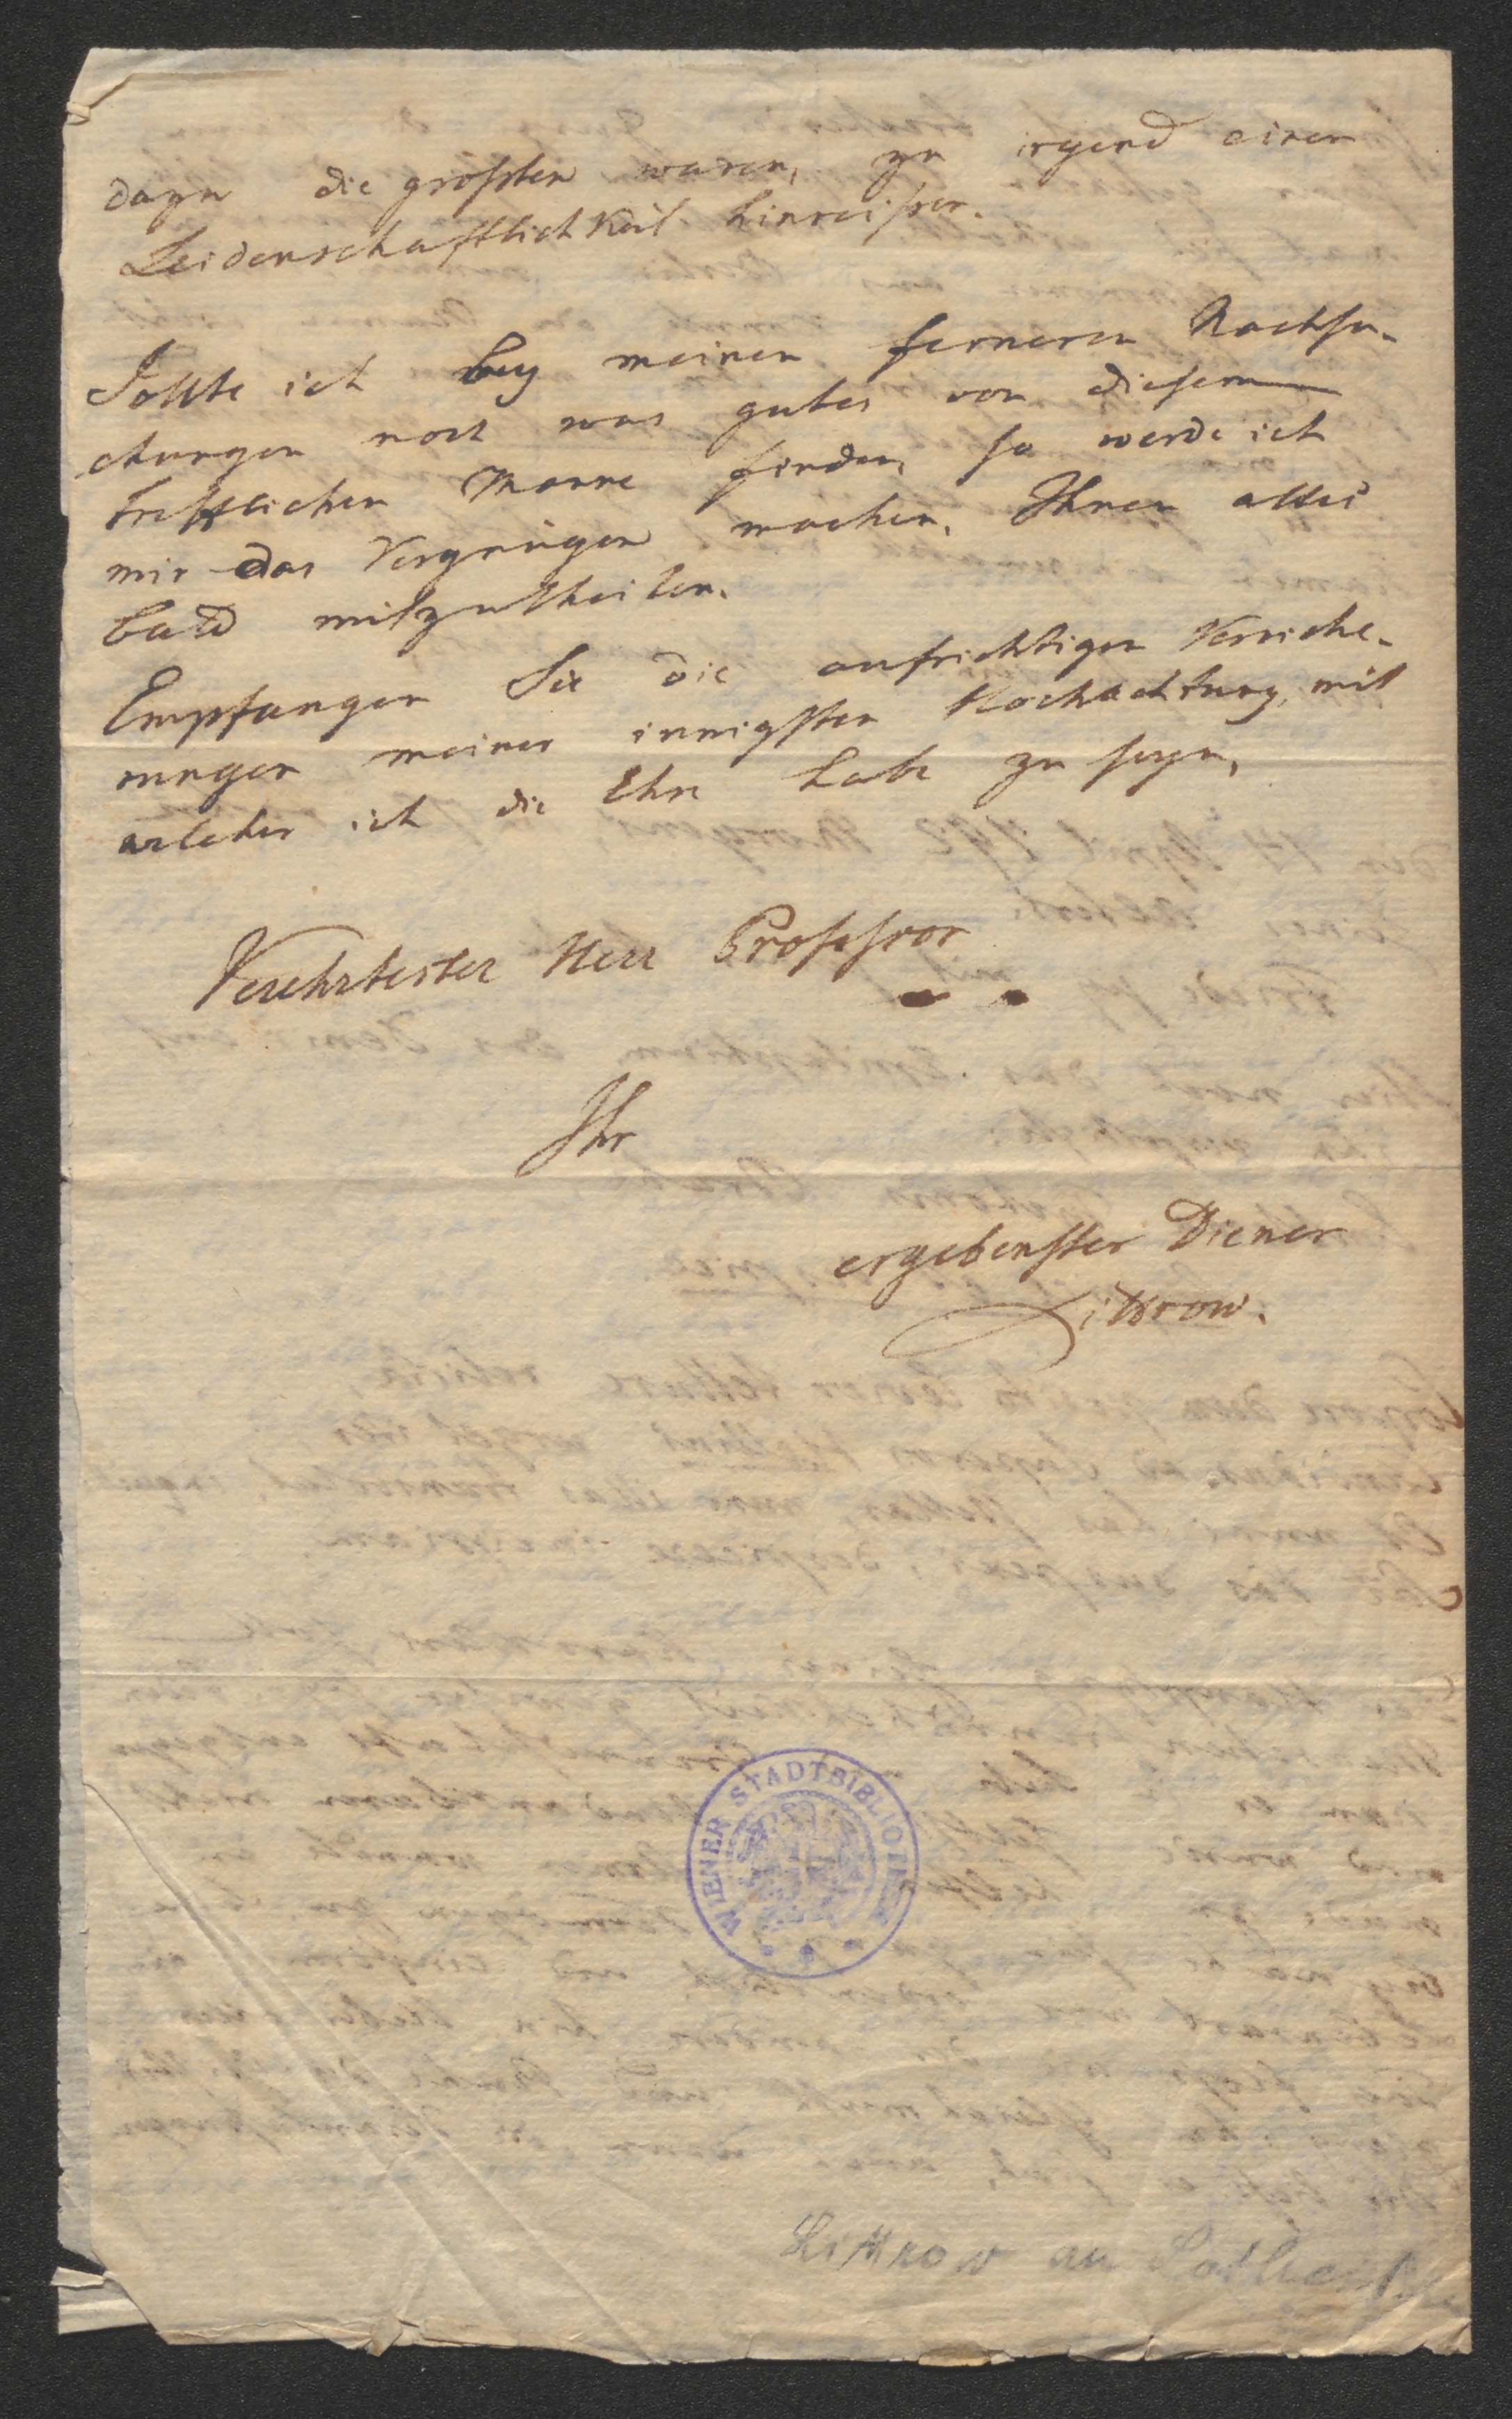 dazu die größten waren, zu irgend einer
Leidenschaftlichkeit hinreißen.
Sollte ich bey meinen ferneren Nachsu-
chungen noch was gutes von diesem
trefflichen Manne finden, so werde ich
mir das Vergnügen machen, Ihnen alles
bald mitzutheilen.
Empfangen Sie die aufrichtigen Versiche-
rungen meiner innigsten Hochachtung, mit
welcher ich die Ehre habe zu seyn,
Verehrtester Herr Professor
Ihr
ergebenster Diener
Littrow.
WIENER STADTBIBLIOTHEK
Littrow an